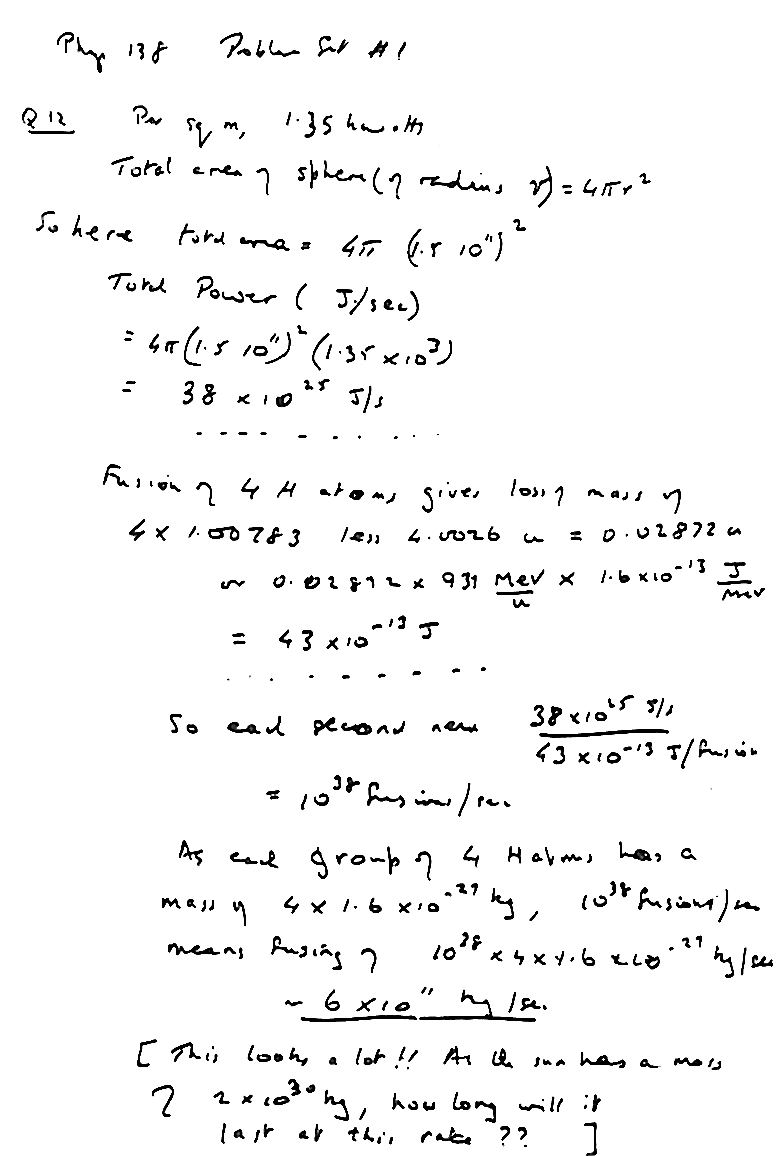 Phys 138 Problem Set #1
Q 12 Per sq m, 1.35 kwatts
Total area of sphere (of radius r) = 4πr²
So here total area = 4π (1.5 10¹¹)²
Total Power ( J/sec)
= 4π(1.5 10¹¹)² (1.35 × 10³)
= 38 × 10²⁵ J/s
Fusion of 4 H atoms gives loss of mass of
4 × 1.00783 less 4.0026 u = 0.02872 u
or 0.02872 × 931 MeV/u × 1.6×10⁻¹³ J/MeV
= 43 ×10⁻¹³ J
So each second need 38×10²⁵ J/s / 43 ×10⁻¹³ J/fusion
= 10³⁸ fusions/sec.
As each group of 4 H atoms has a
mass of 4 × 1.6 ×10⁻²⁷ kg, 10³⁸ fusions/sec
means fusing of 10³⁸ × 4 × 1.6 × 10⁻²⁷ kg/sec
~ 6 ×10¹¹ kg/sec.
[ This looks a lot!! As the sun has a mass
of 2 × 10³⁰ kg, how long will it
last at this rate ?? ]